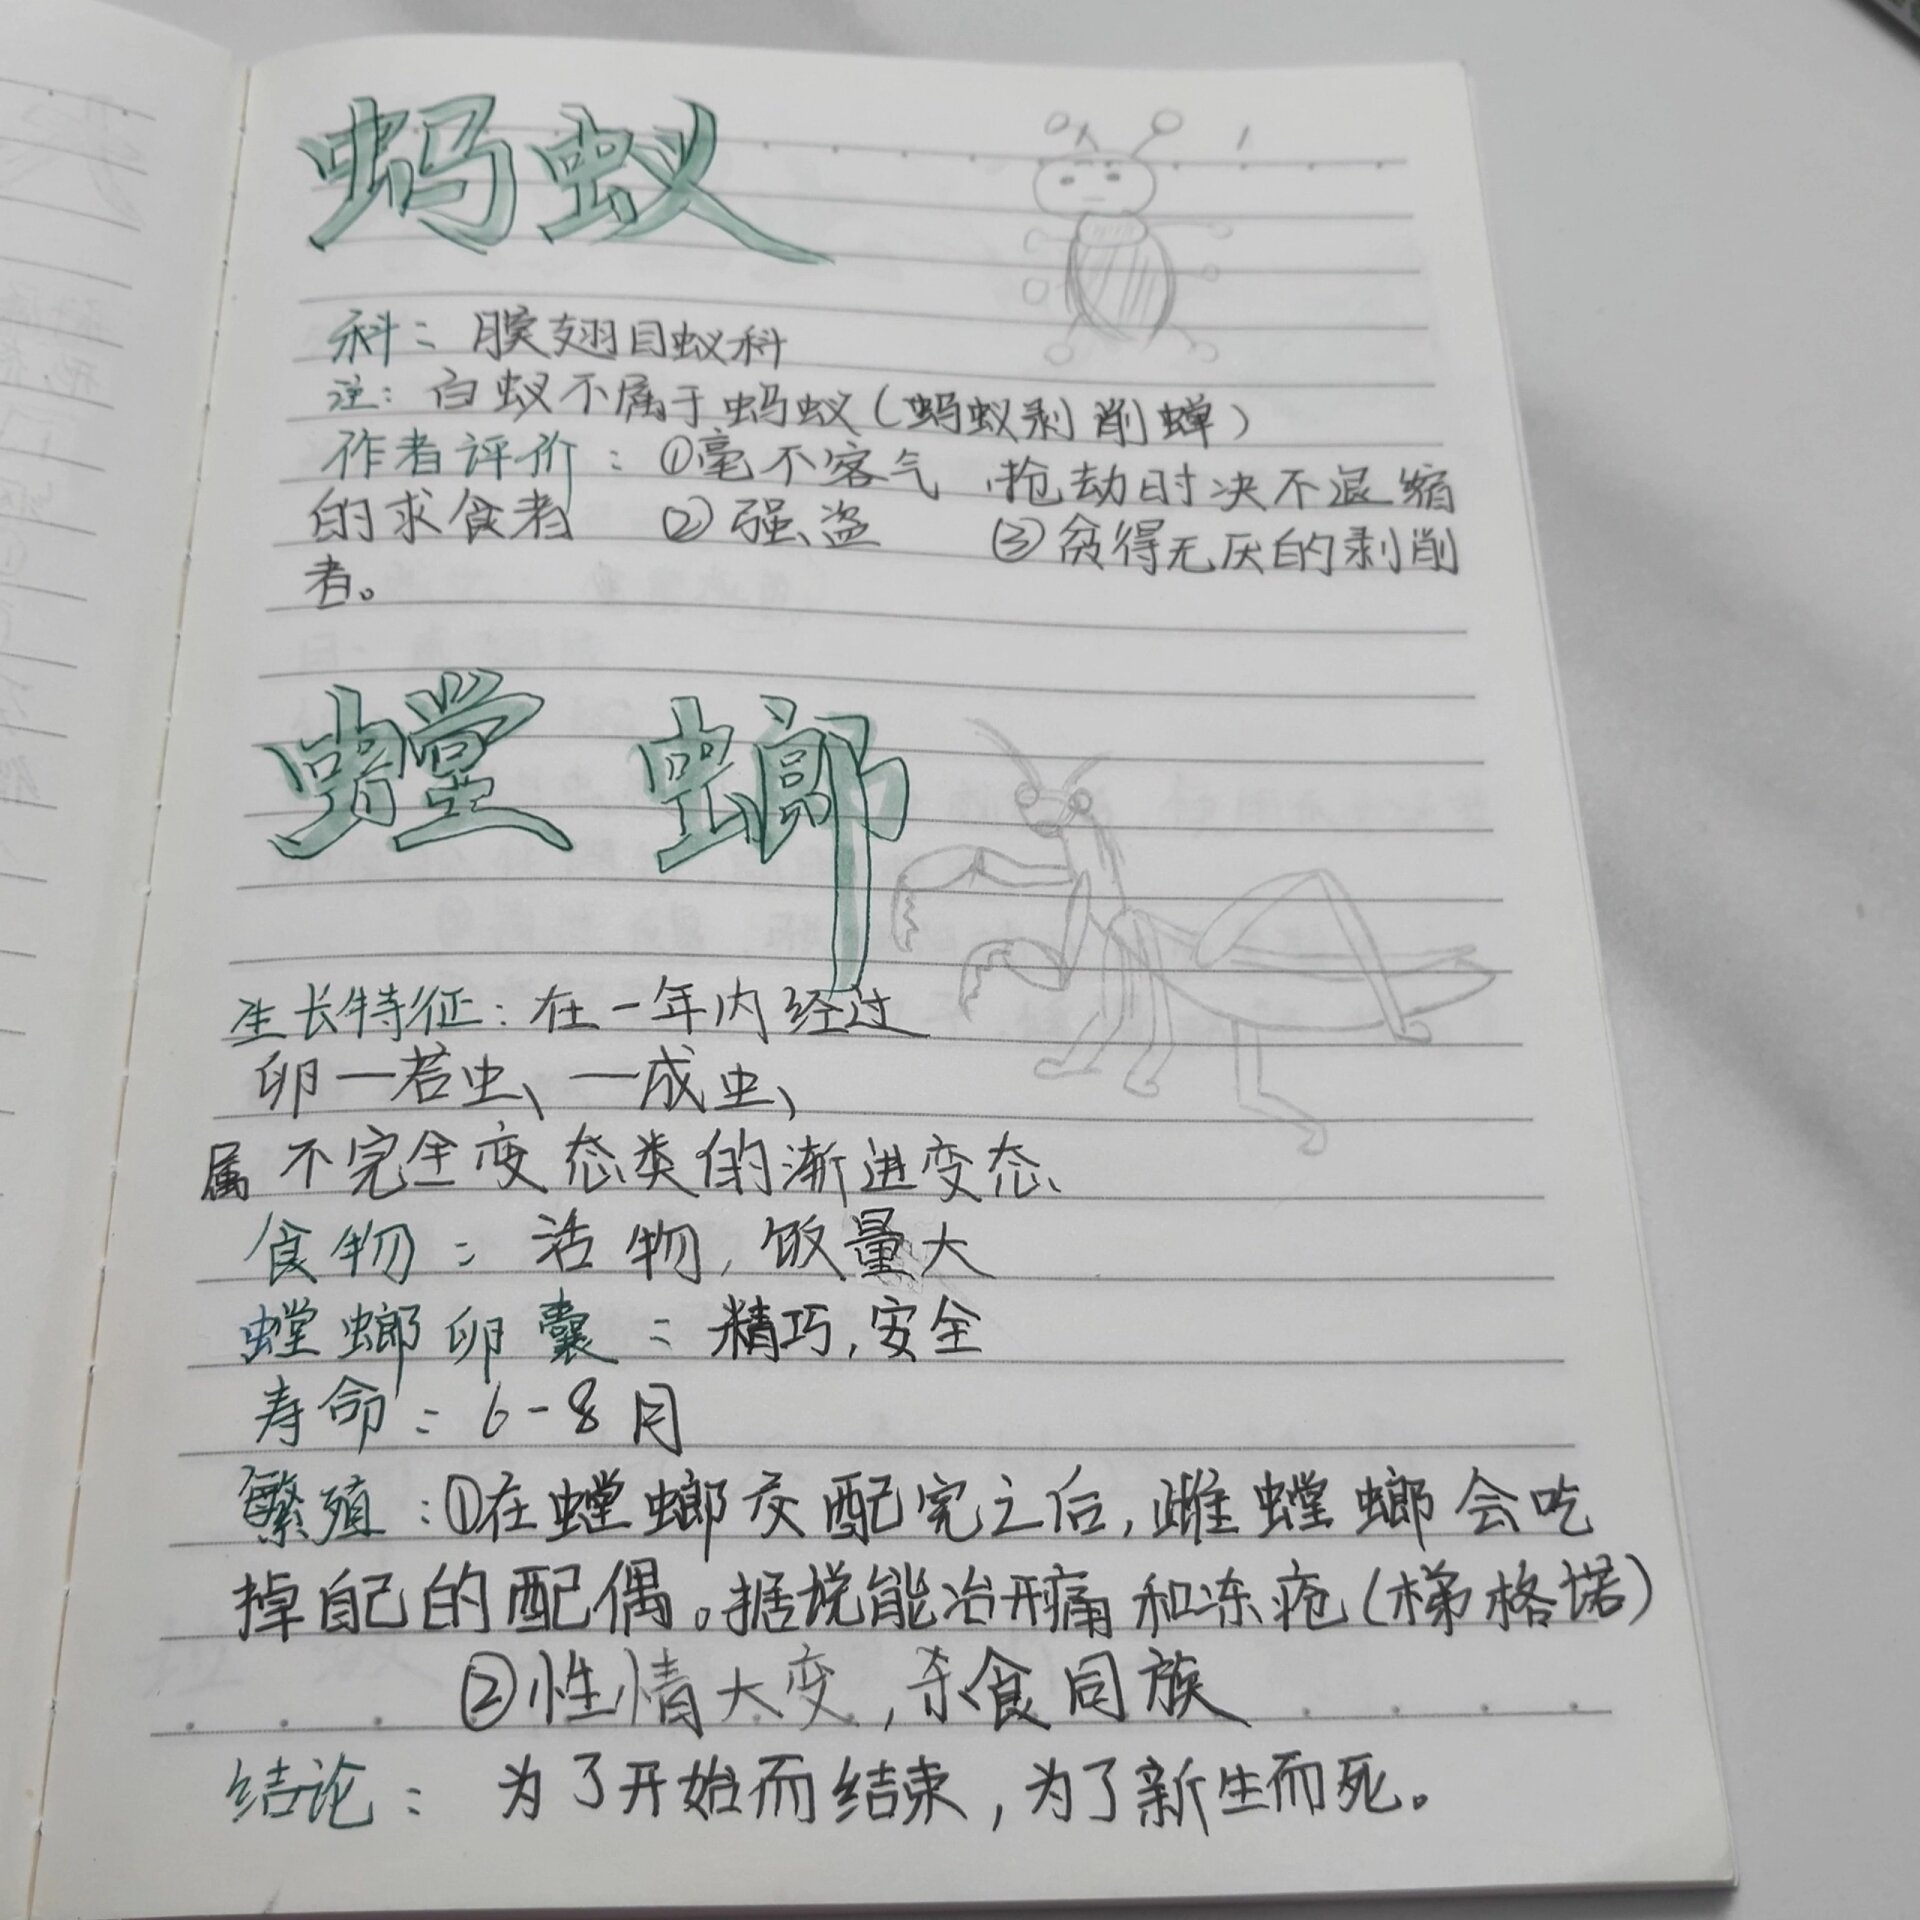 蚂蚁
科：膜翅目蚁科
注：白蚁不属于蚂蚁（蚂蚁剥削蝉）
作者评价：①毫不客气，抢劫时决不退缩
的求食者 ②强盗 ③贪得无厌的剥削
者。
螳螂
生长特征：在一年内经过
卵—若虫—成虫，
属不完全变态类的渐进变态
食物：活物，饭量大
螳螂卵囊：精巧，安全
寿命：6-8月
繁殖：①在螳螂交配完之后，雌螳螂会吃
掉自己的配偶。据说能治牙痛和冻疮（梯格诺）
②性情大变，杀食同族
结论：为了开始而结束，为了新生而死。